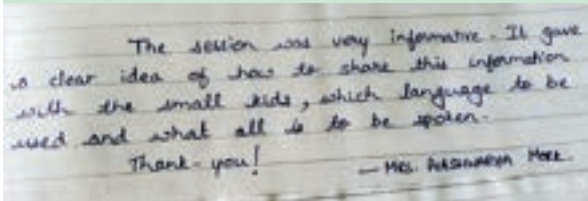 The session was very informative. It gave
a clear idea of how to share this information
with the small kids, which language to be
used and what all is to be spoken.
Thank-you!
— Mrs. Aishwarya More